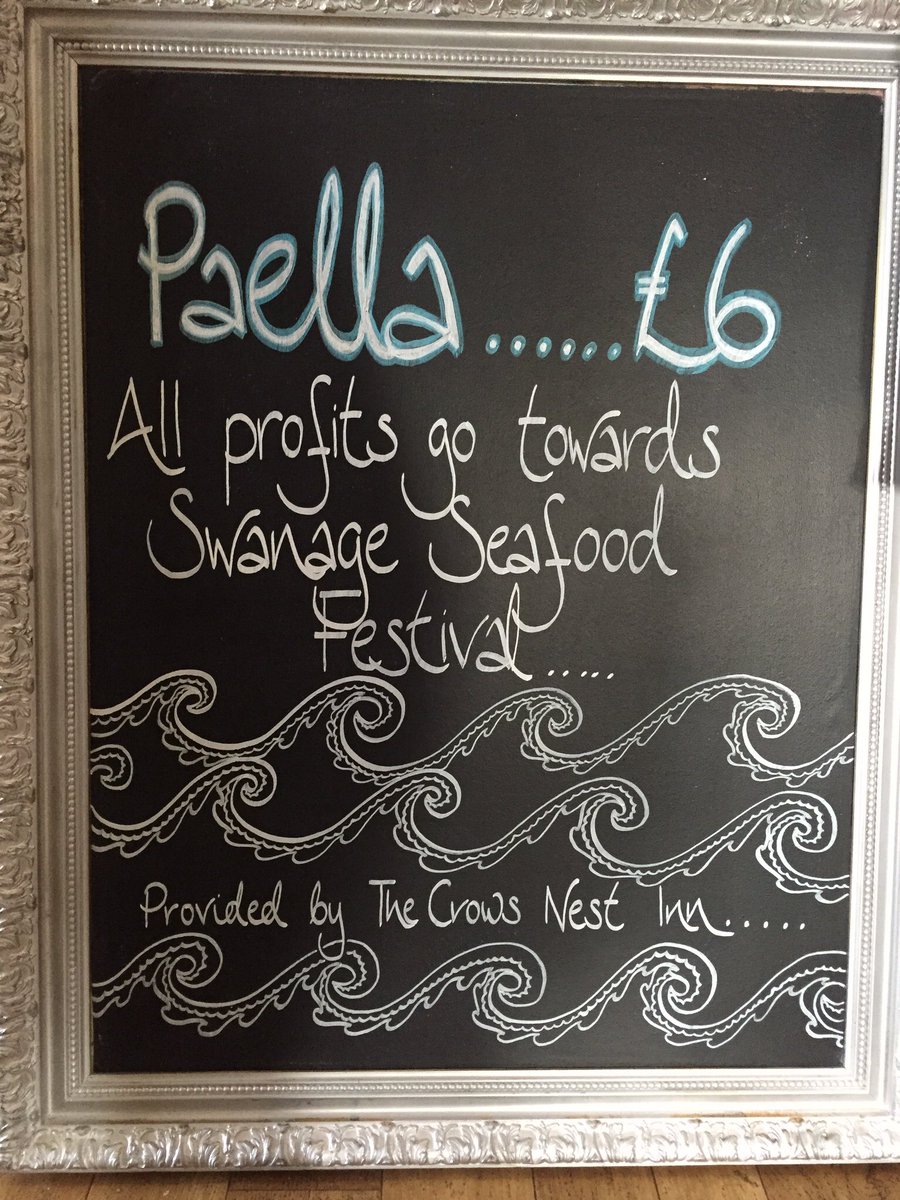 Paella ...... £6
All profits go towards
Swanage Seafood
Festival .....
Provided by The Crows Nest Inn .....